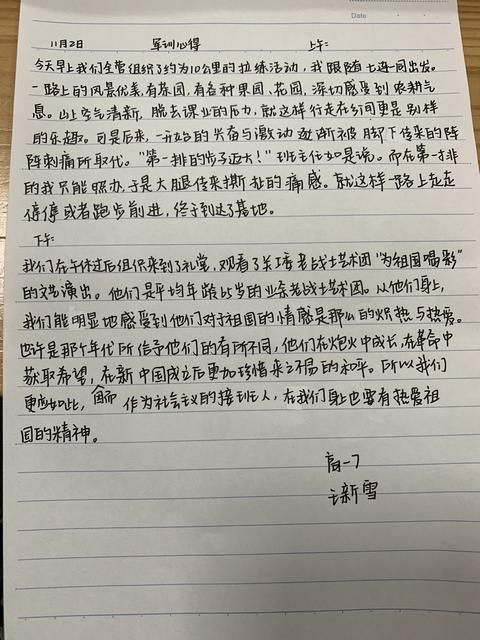 Date
11月2日 军训心得 上午:
今天早上我们全营组织了约为10公里的拉练活动,我跟随七连一同出发。
一路上的风景优美,有茶园,有各种果园,花园,深切感受到农耕气
息。山上空气清新,脱去课业的压力,就这样行走在乡间更是别样
的乐趣。可是后来,一开始的兴奋与激动逐渐被脚下传来的阵
阵刺痛所取代。"第一排的步子迈大!"班主任如是说。而在第一排
的我只能照办,于是大腿传来撕扯的痛感。就这样一路上走走
停停或者跑步前进,终于到达了基地。
下午:
我们在午休过后组织来到了礼堂,观看了关工委老战士艺术团"为祖国喝彩"
的文艺演出。他们是平均年龄65岁的业余老战士艺术团。从他们身上,
我们能明显地感受到他们对于祖国的情感是那么的炽热与热爱。
也许是那个年代所给予他们的有所不同,他们在炮火中成长,在革命中
获取希望,在新中国成立后更加珍惜来之不易的和平。所以我们
更应如此, 作为社会主义的接班人,在我们身上也要有热爱祖
国的精神。
高一7
王新雪